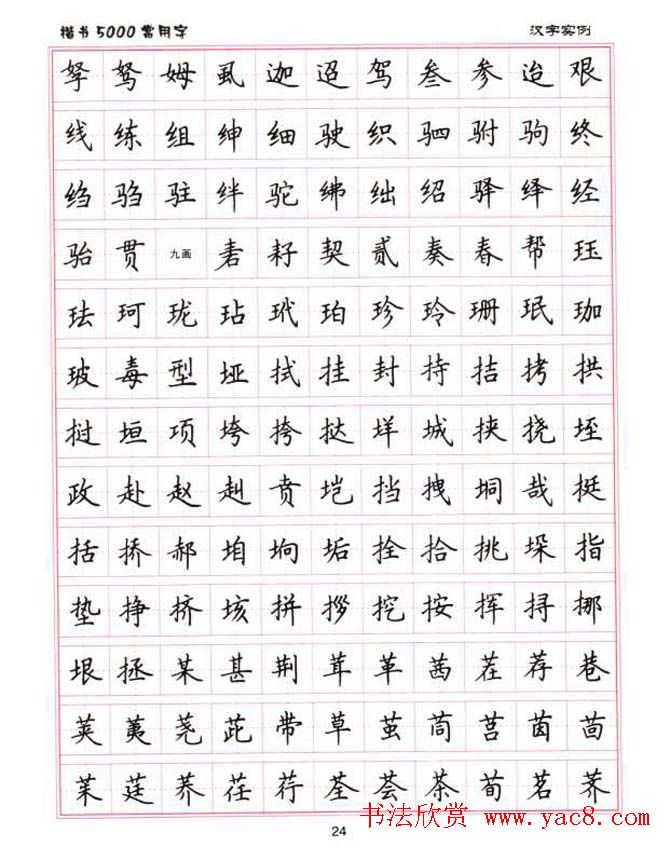 楷书5000常用字 汉字实例
孥驽姆虱迦迢驾叁参迨艰
线练组绅细驶织驷驸驹终
绉驺驻绊驼绋绌绍驿绎经
骀贯九画砉耔契贰奏春帮珏
珐珂珑玷玳珀珍玲珊珉珈
玻毒型垭拭挂封持拮拷拱
挝垣项垮挎挞垟城挟挠垤
政赴赵赳贲垲挡拽垌哉挺
括挢郝垍垧垢拴拾挑垛指
垫挣挤垓拼拶挖按挥挦挪
垠拯某甚荆茸革茜茬荐巷
荚荑荛茈带草茧茼莒茵茴
茱莛荞荏荇荃荟茶荀茗荠
书法欣赏 www.yac8.com
24